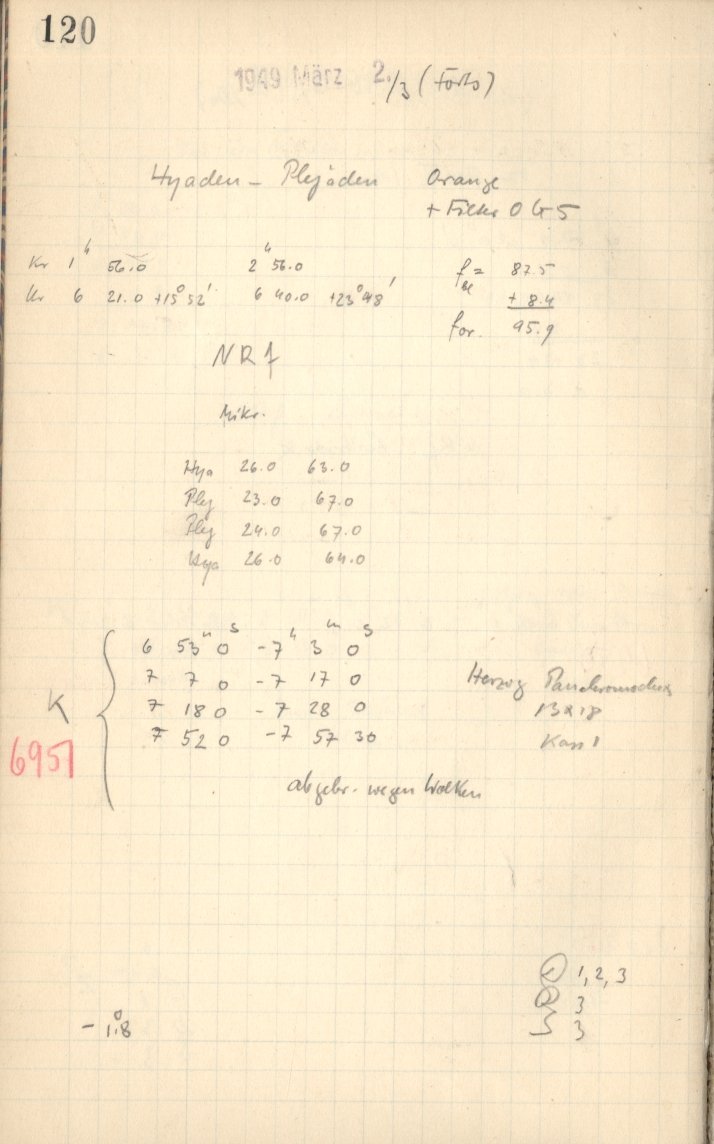 120
1949 März 2./3 (Forts)
Hyaden - Plejaden Orange
+ Filter OG5
Kr 1h 56.0 2h 56.0
Ur 6 21.0 +15° 52' 6 40.0 +23° 48'
f = 87.5
+ 8.4
for. 95.9
NR 1
Mikr.
Hya 26.0 63.0
Plej 23.0 67.0
Plej 24.0 67.0
Hya 26.0 64.0
6 53m 0s - 7h 3m 0s
7 7 0 - 7 17 0
7 18 0 - 7 28 0
7 52 0 - 7 57 30
K
6951
Herzog Panchromodux
13x18
Kass 1
abgebr. wegen Wolken
1, 2, 3
3
3
- 1°.8